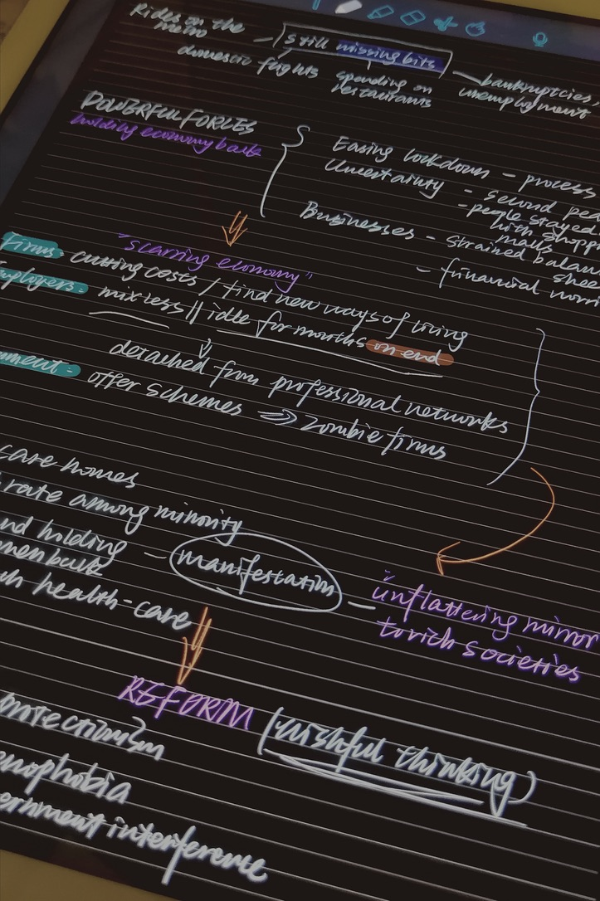 Rides on the
metro
still missing bits
domestic flights
spending on
restaurants
bankruptcies,
unemployment
POWERFUL FORCES
holding economy back
Easing lockdown - process
Uncertainty - second pea
- people stayed
with shopp
malls
Businesses - strained balan
shee
- financial worri
"scarring economy"
Firms - cutting costs / find new ways of living
mployers - mix less || idle for months on end
detached from professional networks
nment - offer schemes => zombie firms
care homes
rate among minority
nd holding
men back
manifestation
"unflattering mirror
to rich societies
ch health-care
REFORM (wishful thinking)
otectionism
enophobia
ernment interference